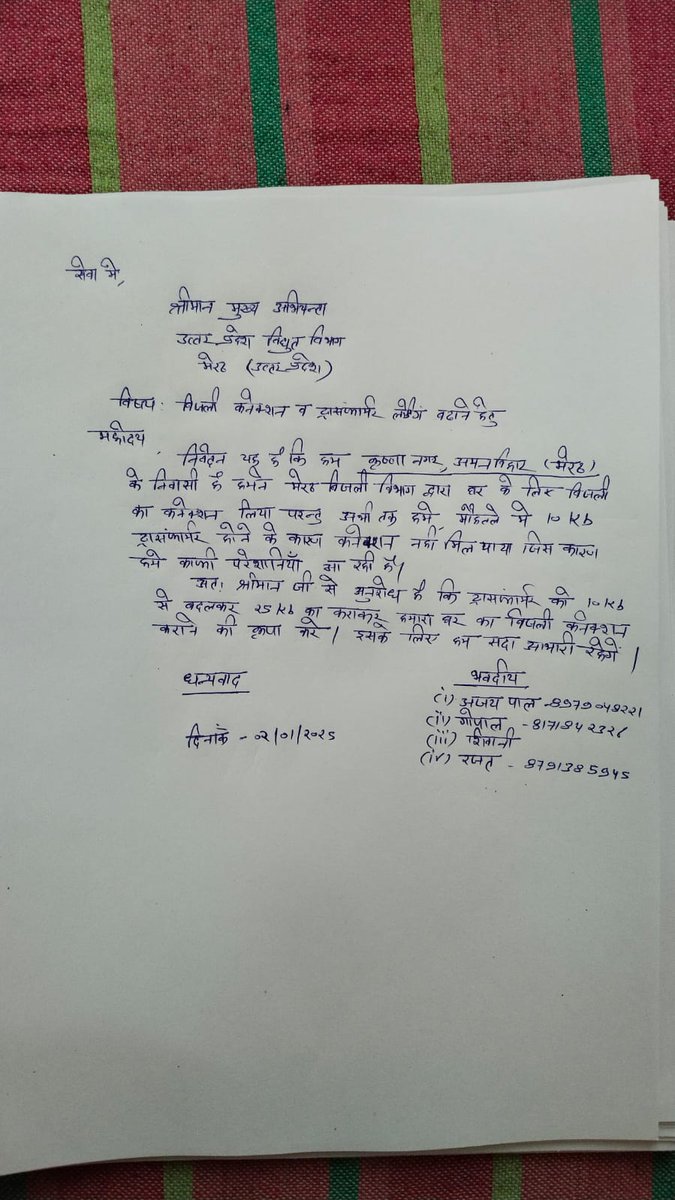 सेवा मे,
श्रीमान मुख्य अभियन्ता
उत्तर प्रदेश विधुत विभाग
मेरठ (उत्तर प्रदेश)
विषय: बिजली कनेक्शन व ट्रासंफार्मर लोडिंग बढाने हेतु
महोदय,
निवेदन यह है कि हम कृष्णा नगर, अमनविहार (मेरठ)
के निवासी है हमने मेरठ बिजली विभाग द्वारा घर के लिए बिजली
का कनेक्शन लिया परन्तु अभी तक हमे, मौहल्ले मे 10 kb
ट्रासंफार्मर होने के कारण कनेक्शन नही मिल पाया जिस कारण
हमे काफी परेशानियाँ आ रही है।
अतः श्रीमान जी से अनुरोध है कि ट्रासफार्मर को 10kb
से बदलकर 25kb का कराकर हमारा घर का बिजली कनेक्शन
कराने की कृपा करे। इसके लिए हम सदा आभारी रहेगें।
धन्यवाद
भवदीय
(i) अजय पाल -8979048221
(ii) गोपाल -
(iii) शिवानी
(iv) रजत - 8791385945
दिनांक - 02/01/2025